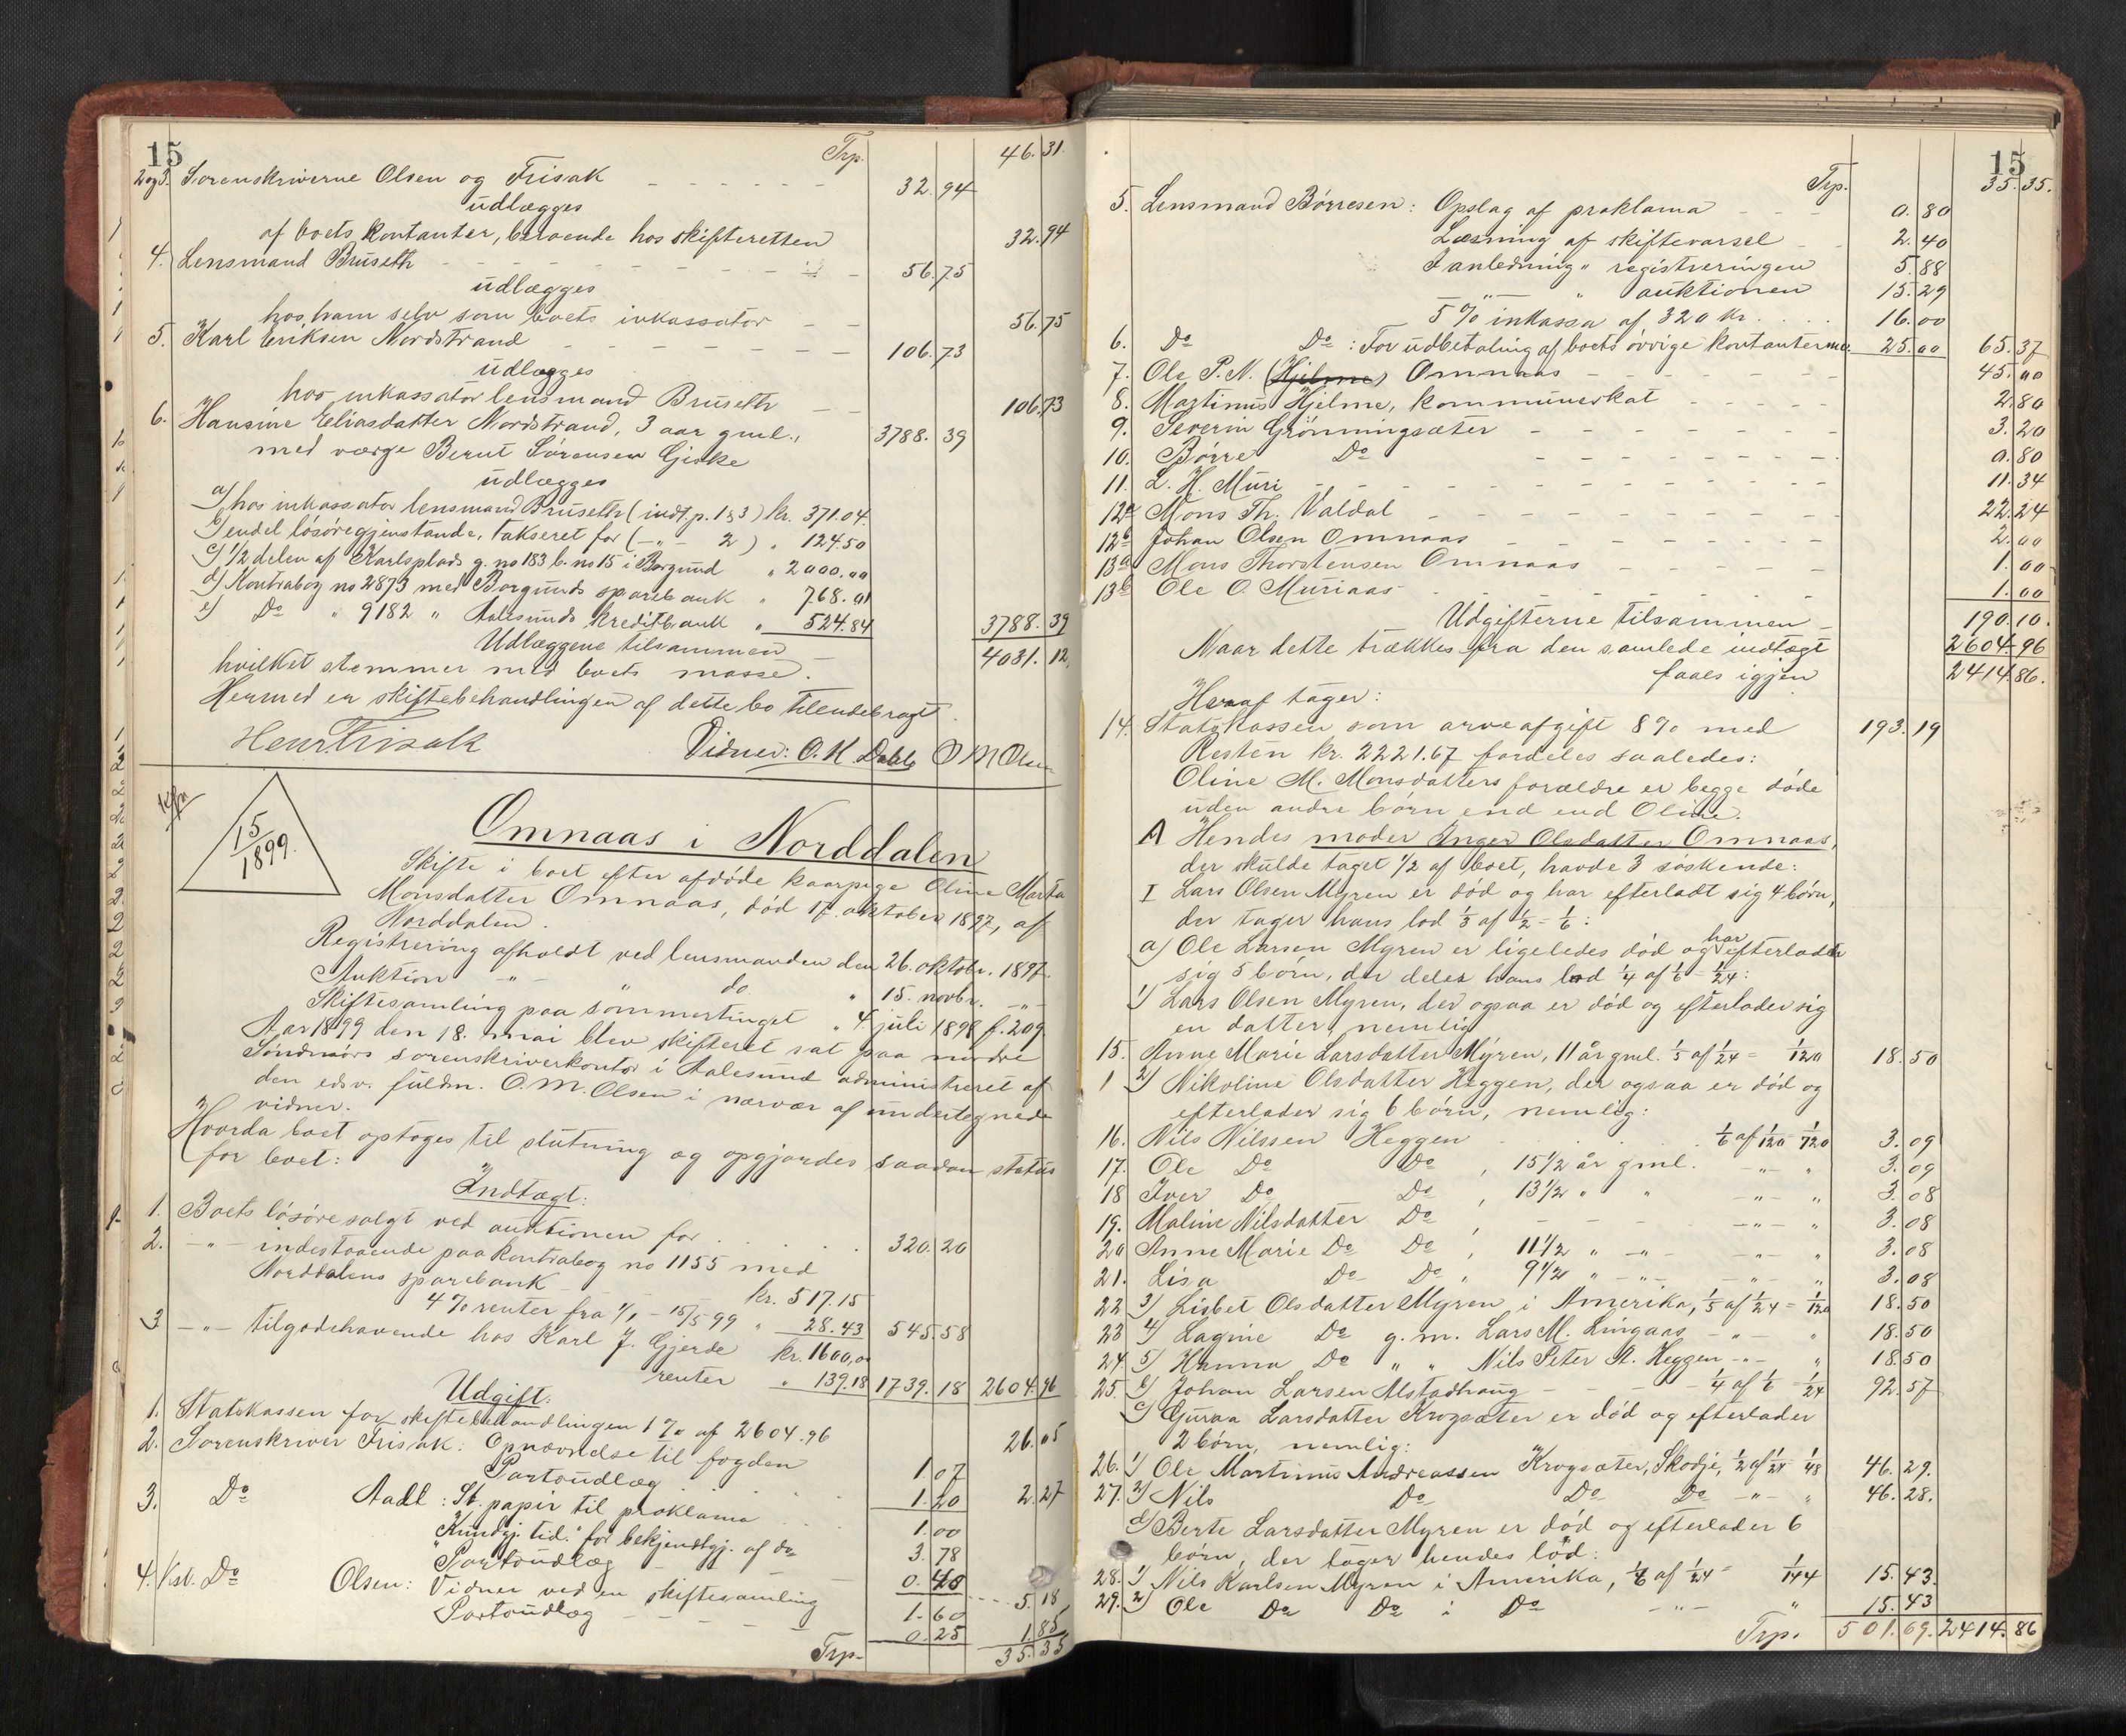 15
Trp. 46.31
2og3. Sorenskriverne Olsen og Frisak 32.94
udlægges
af boets kontanter, beroende hos skifteretten 32.94
4. Lensmand Bruseth 56.75
udlægges
hos ham selv som boets inkassator 56.75
5. Karl Eriksen Nordstrand 106.73
udlægges
hos inkassator lensmand Bruseth 106.73
6. Hansine Eliasdatter Nordstrand, 3 aar gml., 3788.39
med værge Bernt Sørensen Giske
udlægges
a) hos inkassator lensmand Bruseth (indt. p. 1 & 3) kr. 371.04.
b) endel løsøregjenstande, takseret for ( -"- 2) " 124.50
c) 1/2 delen af Karlsplads g. no 183 b. no 15 i Borgund " 2000.00
d) Kontrabog no 2873 med Borgunds sparebank " 768.01
e) Do " 9182 " Aalesunds kreditbank " 524.84 3788.39
Udlæggene tilsammen 4031.12,
hvilket stemmer med boets masse.
Hermed er skiftebehandlingen af dette bo tilendebragt.
Henr. Frisak Vidner: O. K. Dahle O M Olsen
15/1899.
Omnaas i Norddalen
Skifte i boet efter afdøde kaarpige Oline Marta
Monsdatter Omnaas, død 17. oktober 1897, af
Norddalen.
Registrering afholdt ved lensmanden den 26. oktobr. 1897
Auktion -"- " do " 15. novbr. -"-
Skiftesamling paa sommertinget " 4. juli 1898 f. 209
Aar 1899 den 18. mai blev skifteret sat paa nordre
Søndmørs sorenskriverkontor i Aalesund administreret af
den edsv. fuldm. O. M. Olsen i nærvær af undertegnede
vidner.
Hvorda boet optoges til slutning og opgjordes saadan status
for boet:
Indtægt:
1. Boets løsøre solgt ved auktionen for 320.20
2. -"- indestaaende paa kontrabog no 1155 med
Norddalens sparebank kr. 517.15
4 % renter fra 1/1 - 15/5 99 " 28.43 545.58
3 -"- tilgodehavende hos Karl J. Gjerde kr. 1600,00
renter " 139.18 1739.18 2604.96
Udgift:
1. Statskassen for skiftebehandlingen 1 % af 2604.96 26.05
2. Sorenskriver Frisak: Opnævnelse til fogden 1.07
Portoudlæg 1.20 2.27
3. Do Aall: St. papir til proklama 1.00
"Kundgj. tid." for bekjendtgj. af do 3.78
Portoudlæg 0.40 5.18
4. Kst. Do Olsen: Vidner ved en skiftesamling 1.60
Portoudlæg 0.25 1.85
Trp. 35.35
15
Trp. 35.35.
5. Lensmand Børresen: Opslag af proklama 0.80
Læsning af skiftevarsel 2.40
I anledning " registreringen 5.88
-"- " auktionen 15.29
5 % inkassa af 320 kr. 16.00
6. Do Do: For udbetaling af boets øvrige kontanter m.v. 25.00 65.37
7. Ole P. N. (Hjelme) Omnaas 45.00
8. Martinus Hjelme, kommunerkat 2.80
9. Severin Grønningsæter 3.20
10. Børre Do 0.80
11. L. H. Muri 11.34
12a Mons Th. Valdal 22.24
12b Johan Olsen Omnaas 2.00
13a Mons Thorstensen Omnaas 1.00
13b Ole O. Muriaas 1.00
Udgifterne tilsammen 190.10.
Naar dette trækkes fra den samlede indtægt 2604.96
faaes igjen 2414.86.
Heraf tager:
14. Statskassen som arveafgift 8 % med 193.19
Resten kr. 2221.67 fordeles saaledes:
Oline M. Monsdatters forældre er begge døde
uden andre børn end end Oline.
A Hendes moder Inger Olsdatter Omnaas,
der skulde taget 1/2 af boet, havde 3 søskende:
I Lars Olsen Myren er død og har efterladt sig 4 børn,
der tager hans lod 1/3 af 1/2 = 1/6:
a) Ole Larsen Myren er ligeledes død og har efterladt
sig 5 børn, der deler hans lod 1/4 af 1/6 = 1/24:
1) Lars Olsen Myren, der ogsaa er død og efterlader sig
en datter, nemlig
15. Anne Marie Larsdatter Myren, 11 år gml. 1/5 af 1/24 = 1/120 18.50
2) Nikoline Olsdatter Heggen, der ogsaa er død og
efterlader sig 6 børn, nemlig:
16. Nils Nilssen Heggen 1/6 af 1/120 = 1/720 3.09
17. Ole Do Do, 15 1/2 år gml. -"- " 3.09
18 Iver Do Do, 13 1/2 " " -"- " 3.08
19. Maline Nilsdatter Do, -"- " 3.08
20 Anne Marie Do Do, 11 1/2 " -"- -"- " 3.08
21. Lisa Do Do, 9 1/2 " -"- -"- " 3.08
22 3) Lisbet Olsdatter Myren i Amerika, 1/5 af 1/24 = 1/120 18.50
23 4) Lagine Do g. m. Lars M. Lingaas -"- " 18.50
24. 5) Hanna Do " " Nils Peter A. Heggen -"- " 18.50
25. b) Johan Larsen Alstadhaug 1/4 af 1/6 = 1/24 92.57
c) Guraa Larsdatter Krogsæter er død og efterlader
2 børn, nemlig:
26. 1) Ole Martinus Andreassen Krogsæter, Skodje, 1/2 af 1/24 1/48 46.29.
27. 2) Nils Do Do Do -"- " 46.28.
d) Berte Larsdatter Myren er død og efterlader 6
børn, der tager hendes lod:
28. 1) Nils Karlsen Myren i Amerika, 1/6 af 1/24 = 1/144 15.43.
29. 2) Ole Do Do i Do -"- " 15.43
Trp. 501.69. 2414.86